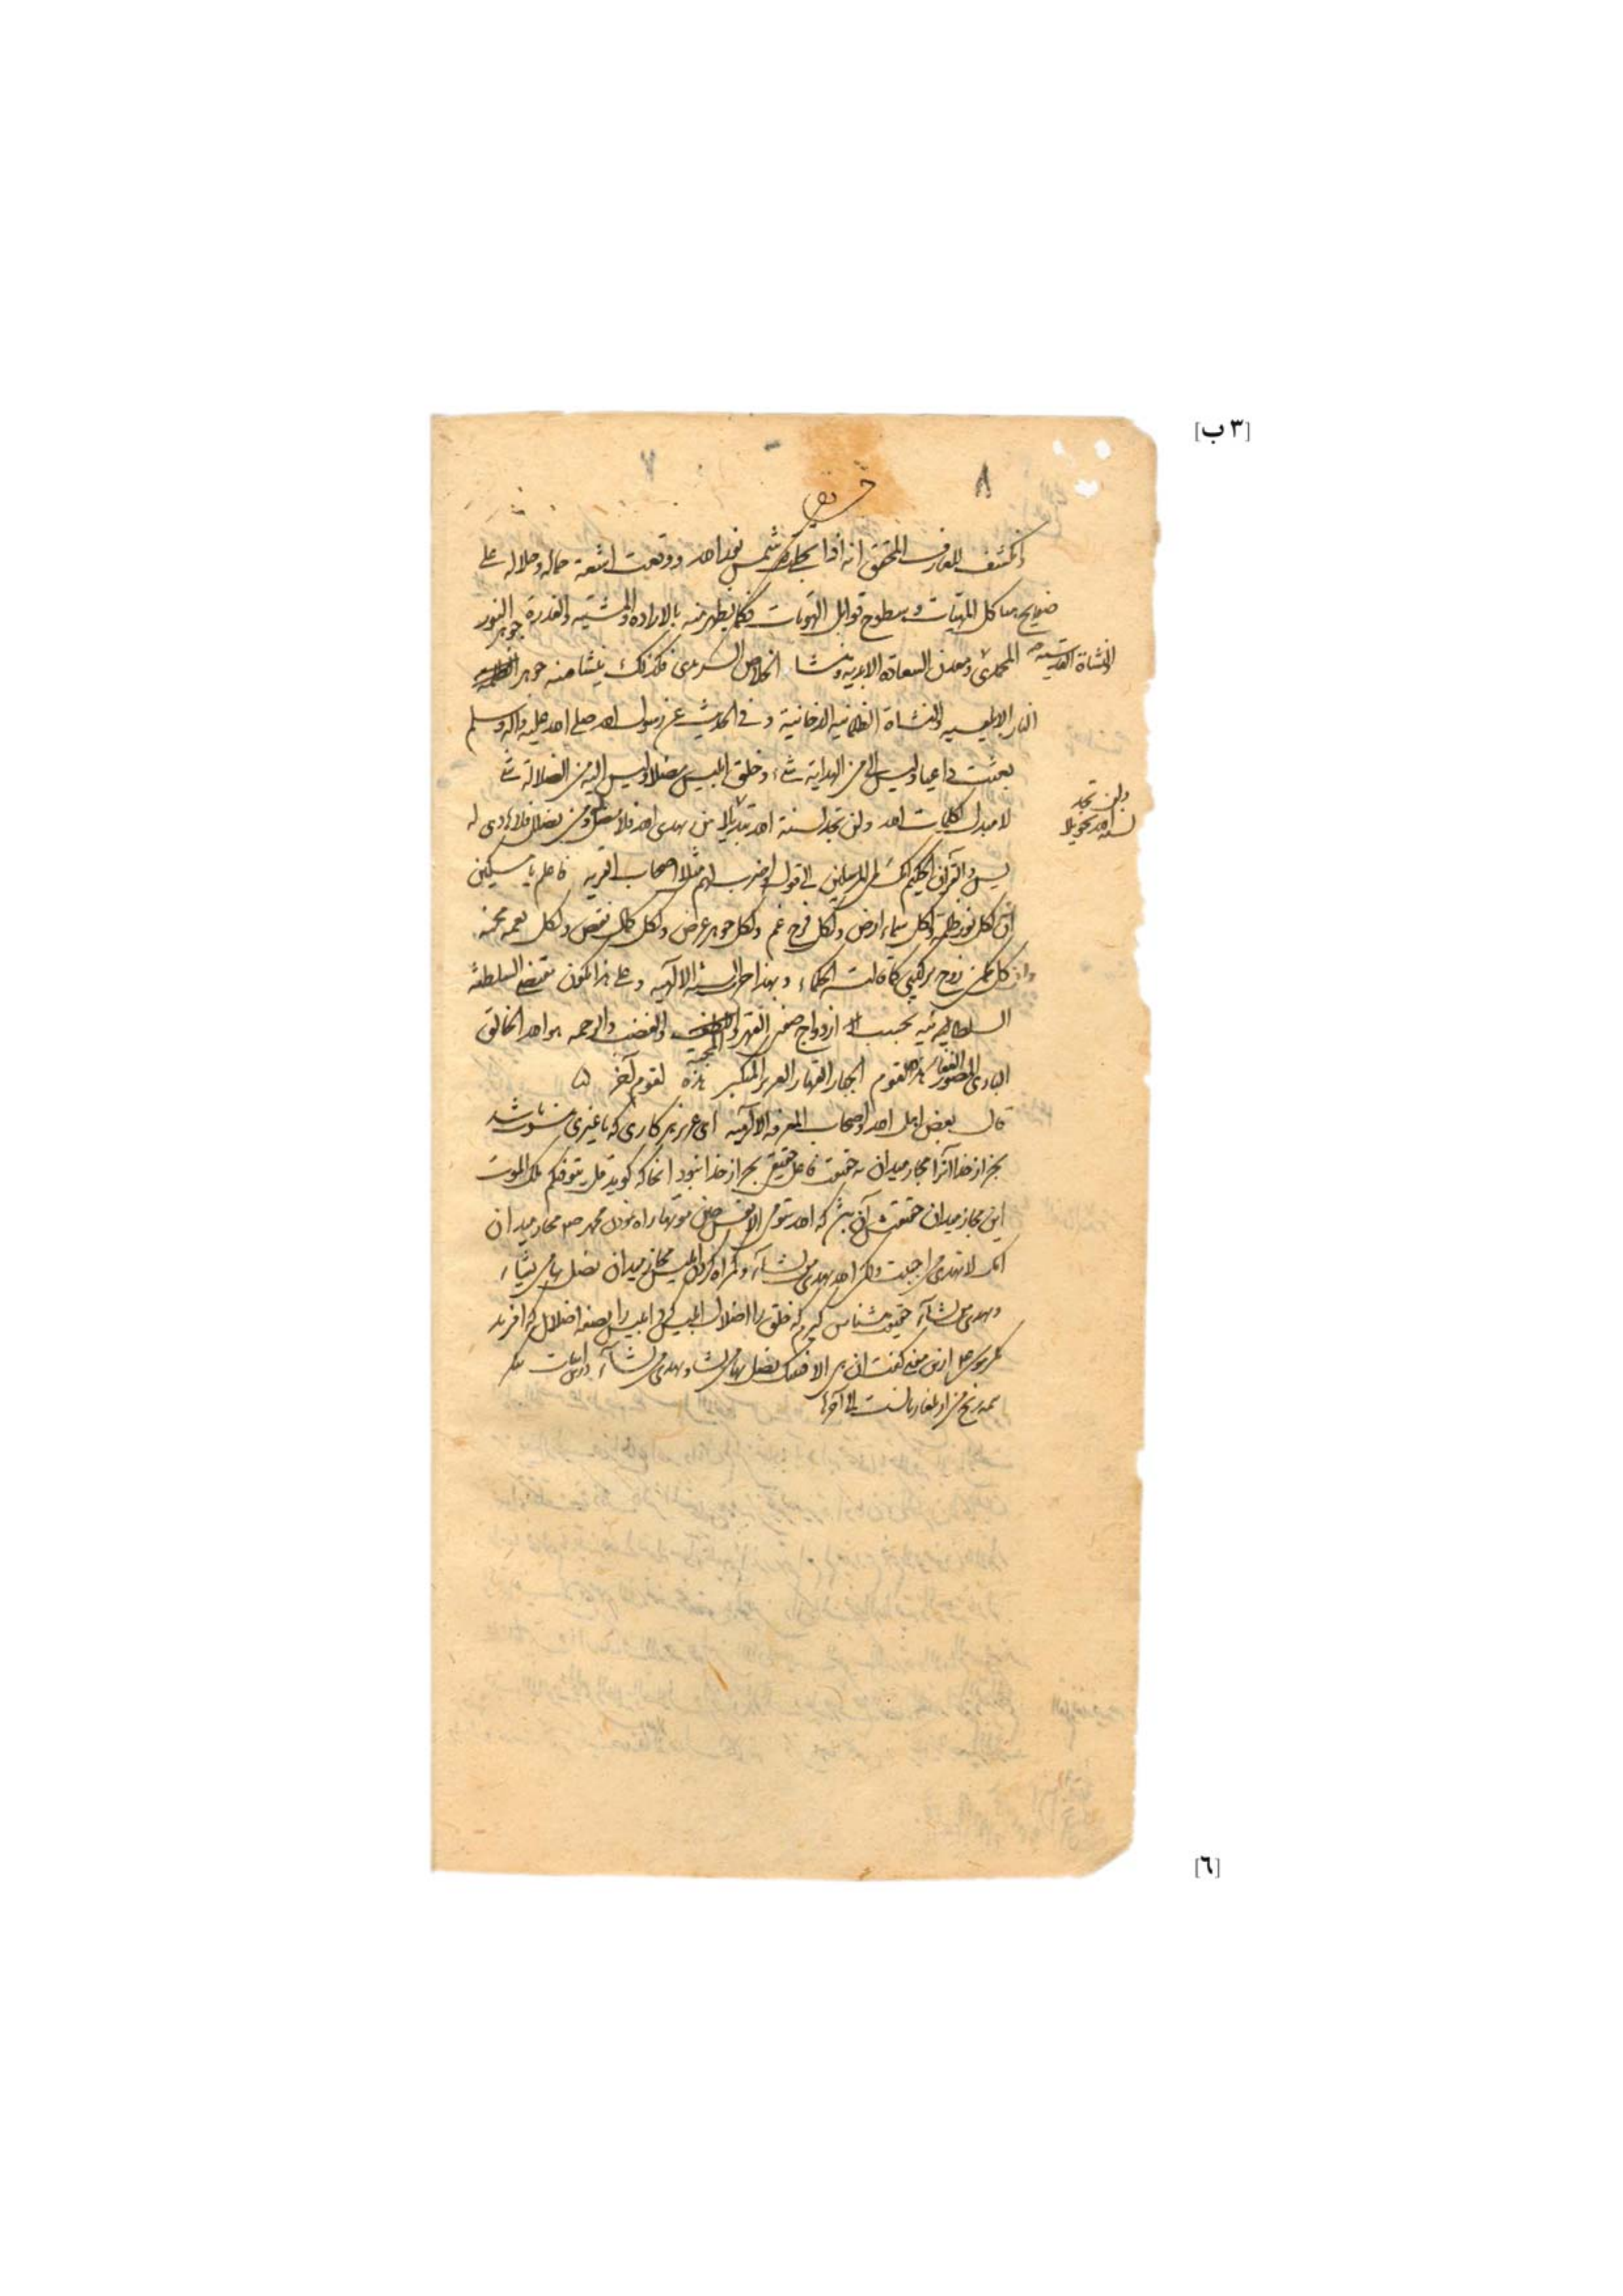 [٣ ب]
٨
٧
انكشف للعارف المحقق انه اذا شمس نور الله ووقعت اشعة جماله وجلاله على
هياكل المهيات وسطوح قوابل الهويات فكما يظهر منه بالاراده والمشية والقدرة جوهر النور
والنشاة القدسيه
المحمدى ومعدن السعاده الابديه ومنشا الخلاص السرمدى فكذلك ينشا منه جوهر الظلمه
النار الابليسيه والنشاة الظلمانيه الدخانية وفى الحديث عن رسول الله صلى الله عليه واله وسلم
بعثت داعيا وليس الى من الهداية شىء وخلق ابليس مضلا وليس اليه من الضلالة شى
ولن تجد
لسنة الله تحويلا
لا مبدل لكلمات الله ولن تجد لسنة الله تبديلا من يهدى الله فلا مضل له ومن يضلل فلا هادى له
يس والقران الحكيم انك لمن المرسلين الى قوله واضرب لهم مثلا اصحاب القريه فاعلم يا مسكين
ان لكل نور ظلمة ولكل سماء ارض ولكل فرح غم ولكل جوهر عرض ولكل كمال نقص ولكل نعمه محنه
واذ كل ممكن زوج تركيبى كما قالت الحكماء وبهذا جرت السنة الالهيه وعلى هذا يكون مقتضى السلطنه
بحسب ازدواج صفتى القهر والمحبة والغضب والرحمه هو الله الخالق
البارى المصور الغفار هذه لقوم الجبار القهار العزيز المتكبر هذه لقوم آخر
قال بعض اهل الله واصحاب المعرفه الالهيه اى عزيز هر كارى كه با غيرى منسوب باشد
بجز از خدا آنرا مجاز ميدان نه حقيقت فاعل حقيقى بجز از خدا نبود آنجا كه گويد قل يتوفيكم ملك الموت
اين مجاز ميدان حقيقتش آن باشد كه الله يتوفى الانفس حين موتها راه نمودن محمد صم مجاز ميدان
انك لا تهدى من احببت ولكن الله يهدى من يشاء وگمراه كردن ابليس مجاز ميدان يضل بها من يشاء
ويهدى من يشاء حقيقت ميشناس گيرم كه خلق را اضلال ابليس كند ابليس را بصفه اضلال كه افريد
مگر موسى ع از اين معنى گفت ان هى الا فتنتك يضل بها من تشاء ويهدى من تشاء
همه رنج من از بلغاريانست الى آخرها
[٦]